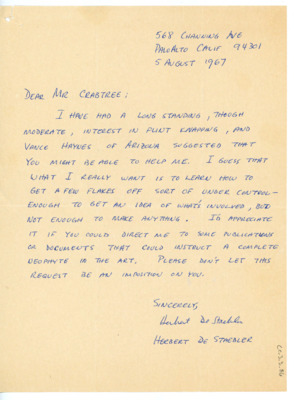 568 CHANNING AVE
PALO ALTO CALIF 94301
5 AUGUST 1967
DEAR MR CRABTREE:
I HAVE HAD A LONG STANDING, THOUGH
MODERATE, INTEREST IN FLINT KNAPPING, AND
VANCE HAYNES OF ARIZONA SUGGESTED THAT
YOU MIGHT BE ABLE TO HELP ME. I GUESS THAT
WHAT I REALLY WANT IS TO LEARN HOW TO
GET A FEW FLAKES OFF SORT OF UNDER CONTROL-
ENOUGH TO GET AN IDEA OF WHAT'S INVOLVED, BUT
NOT ENOUGH TO MAKE ANYTHING. I'D APPRECIATE
IT IF YOU COULD DIRECT ME TO SOME PUBLICATIONS
OR DOCUMENTS THAT COULD INSTRUCT A COMPLETE
NEOPHYTE IN THE ART. PLEASE DON'T LET THIS
REQUEST BE AN IMPOSITION ON YOU.
SINCERELY,
Herbert De Staebler
HERBERT DE STAEBLER